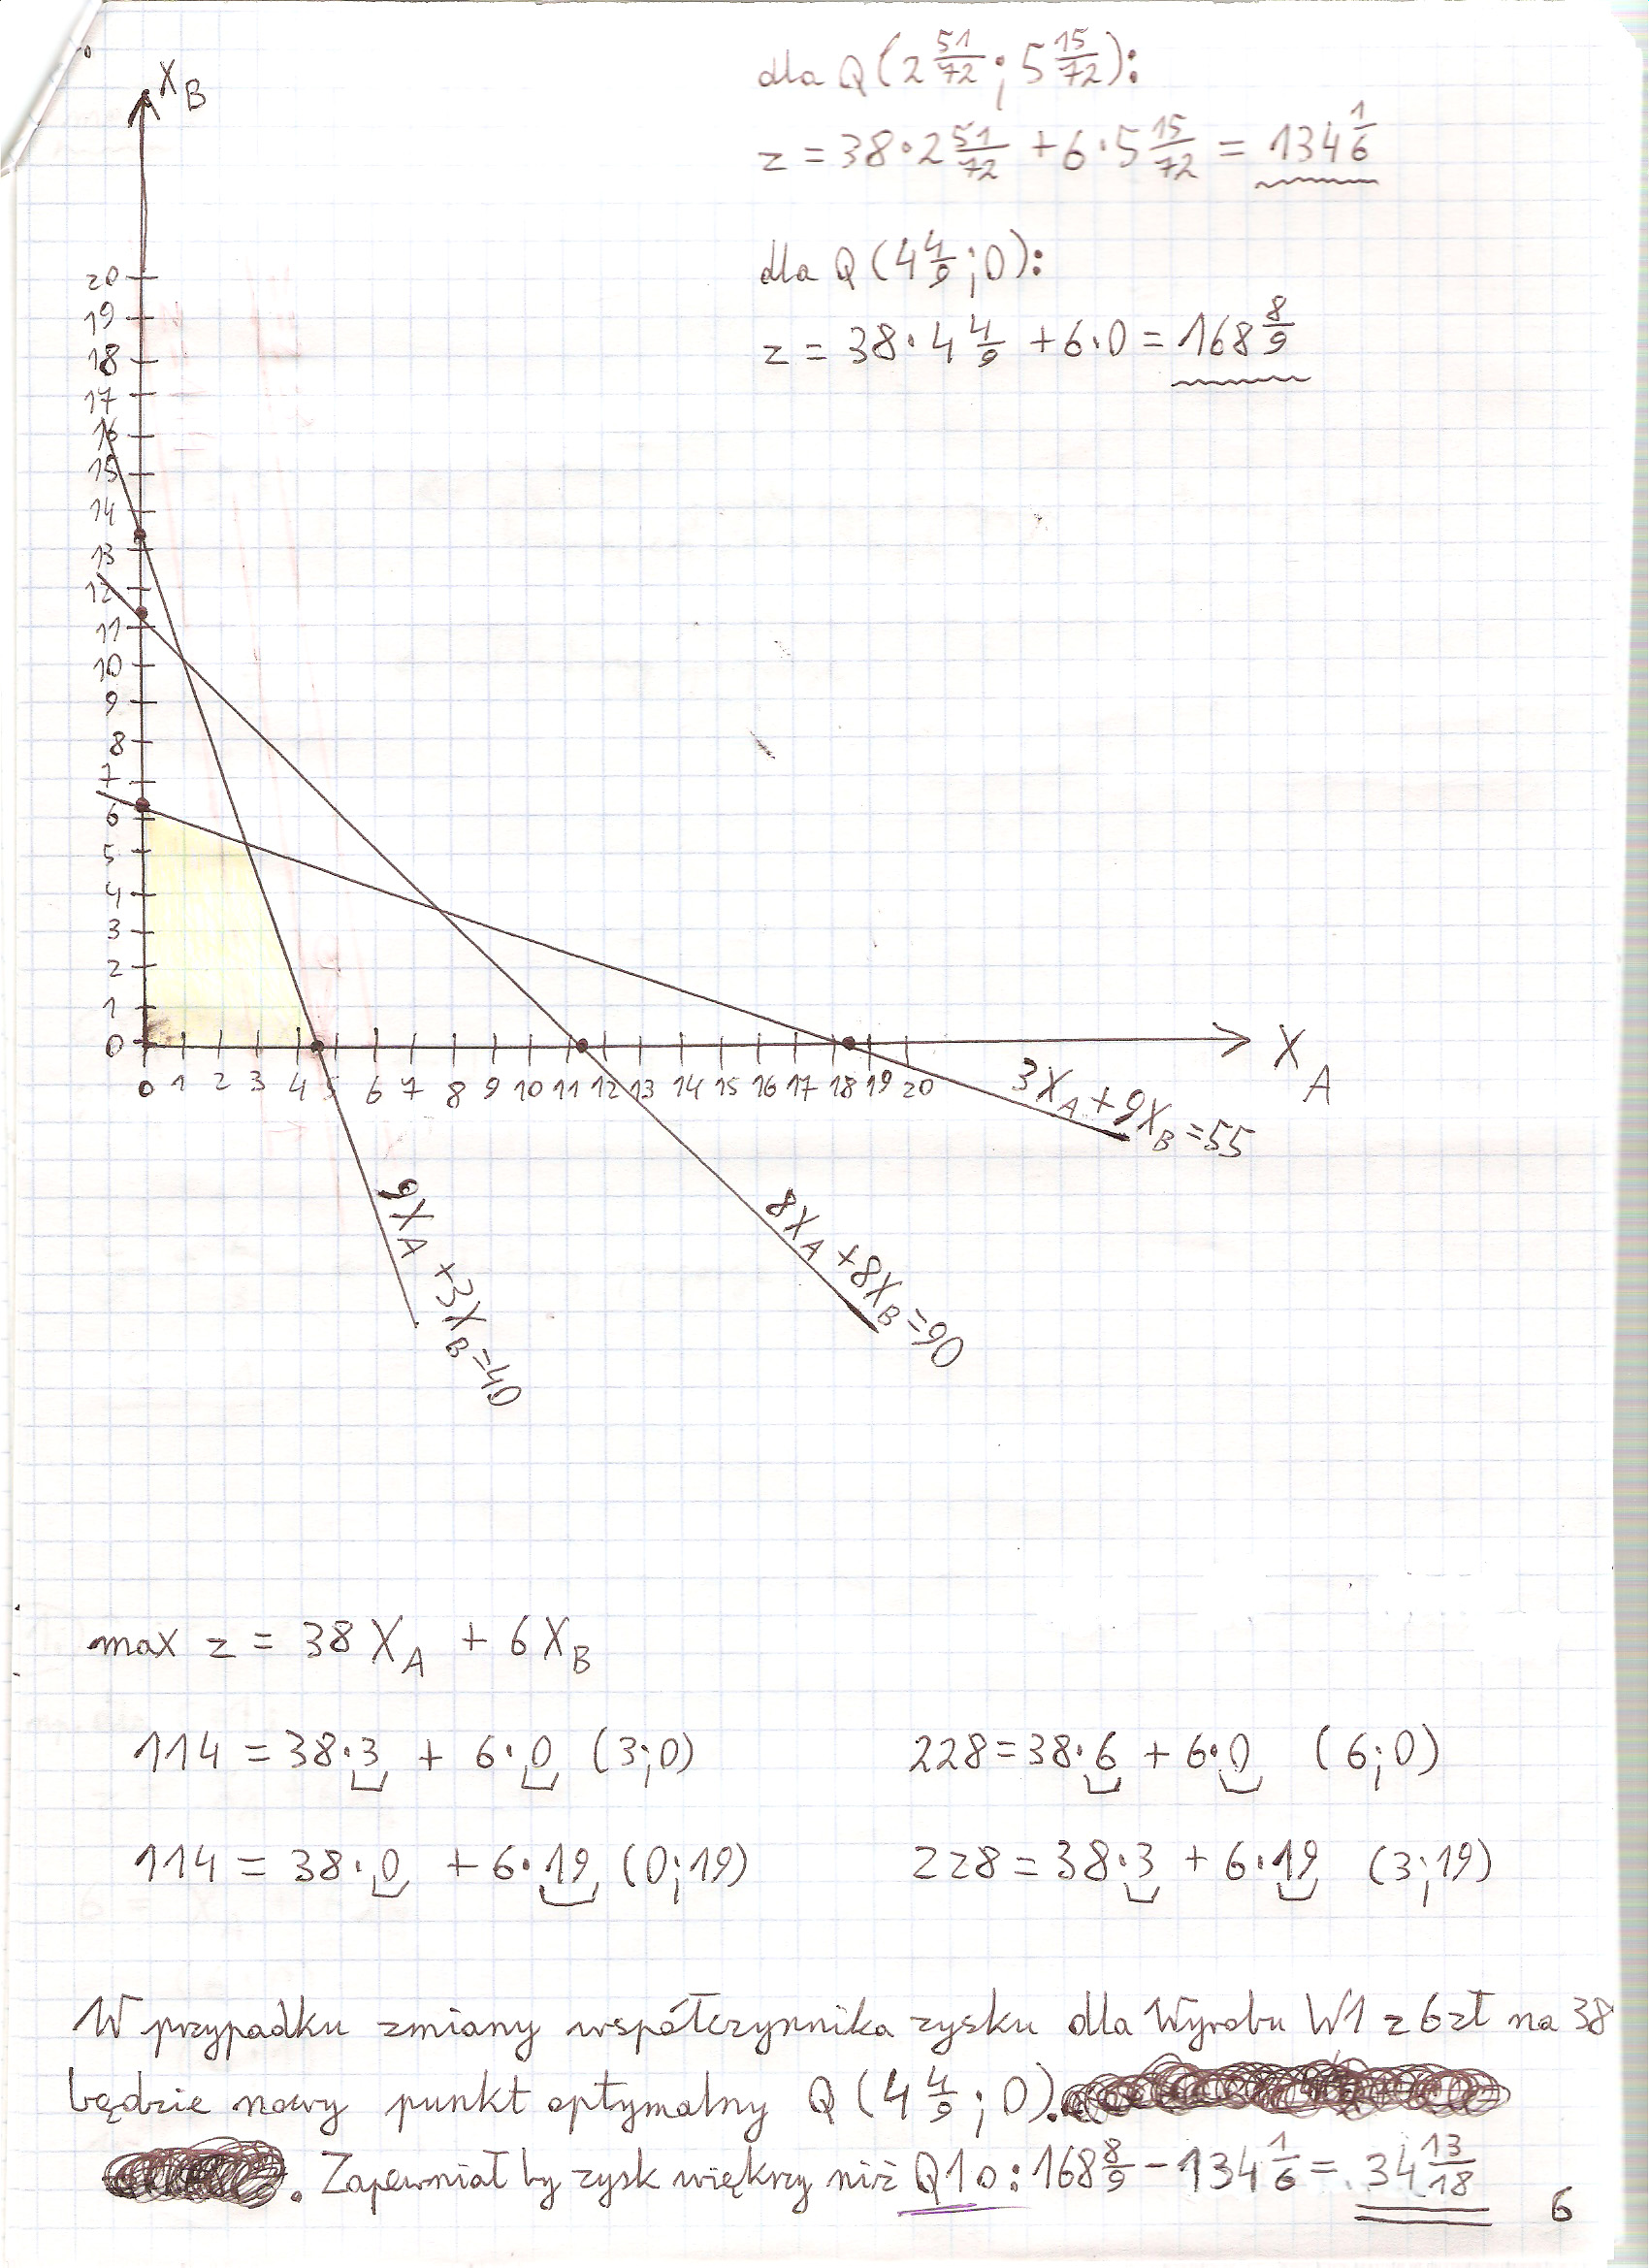 X_B
dla Q (2 51/72 ; 5 15/72):
z = 38 · 2 51/72 + 6 · 5 15/72 = 134 1/6
dla Q (4 4/9 ; 0):
z = 38 · 4 4/9 + 6 · 0 = 168 8/9
20
19
18
17
16
15
14
13
12
11
10
9
8
7
6
5
4
3
2
1
0
0 1 2 3 4 5 6 7 8 9 10 11 12 13 14 15 16 17 18 19 20
X_A
3X_A + 9X_B = 55
8X_A + 8X_B = 90
9X_A + 3X_B = 40
max z = 38 X_A + 6 X_B
114 = 38 · 3 + 6 · 0 (3;0)
228 = 38 · 6 + 6 · 0 (6;0)
114 = 38 · 0 + 6 · 19 (0;19)
228 = 38 · 3 + 6 · 19 (3;19)
W przypadku zmiany współczynnika zysku dla Wyrobu W1 z 6zł na 38
będzie nowy punkt optymalny Q (4 4/9 ; 0).
. Zapewniał by zysk większy niż Q10: 168 8/9 - 134 1/6 = 34 13/18
6